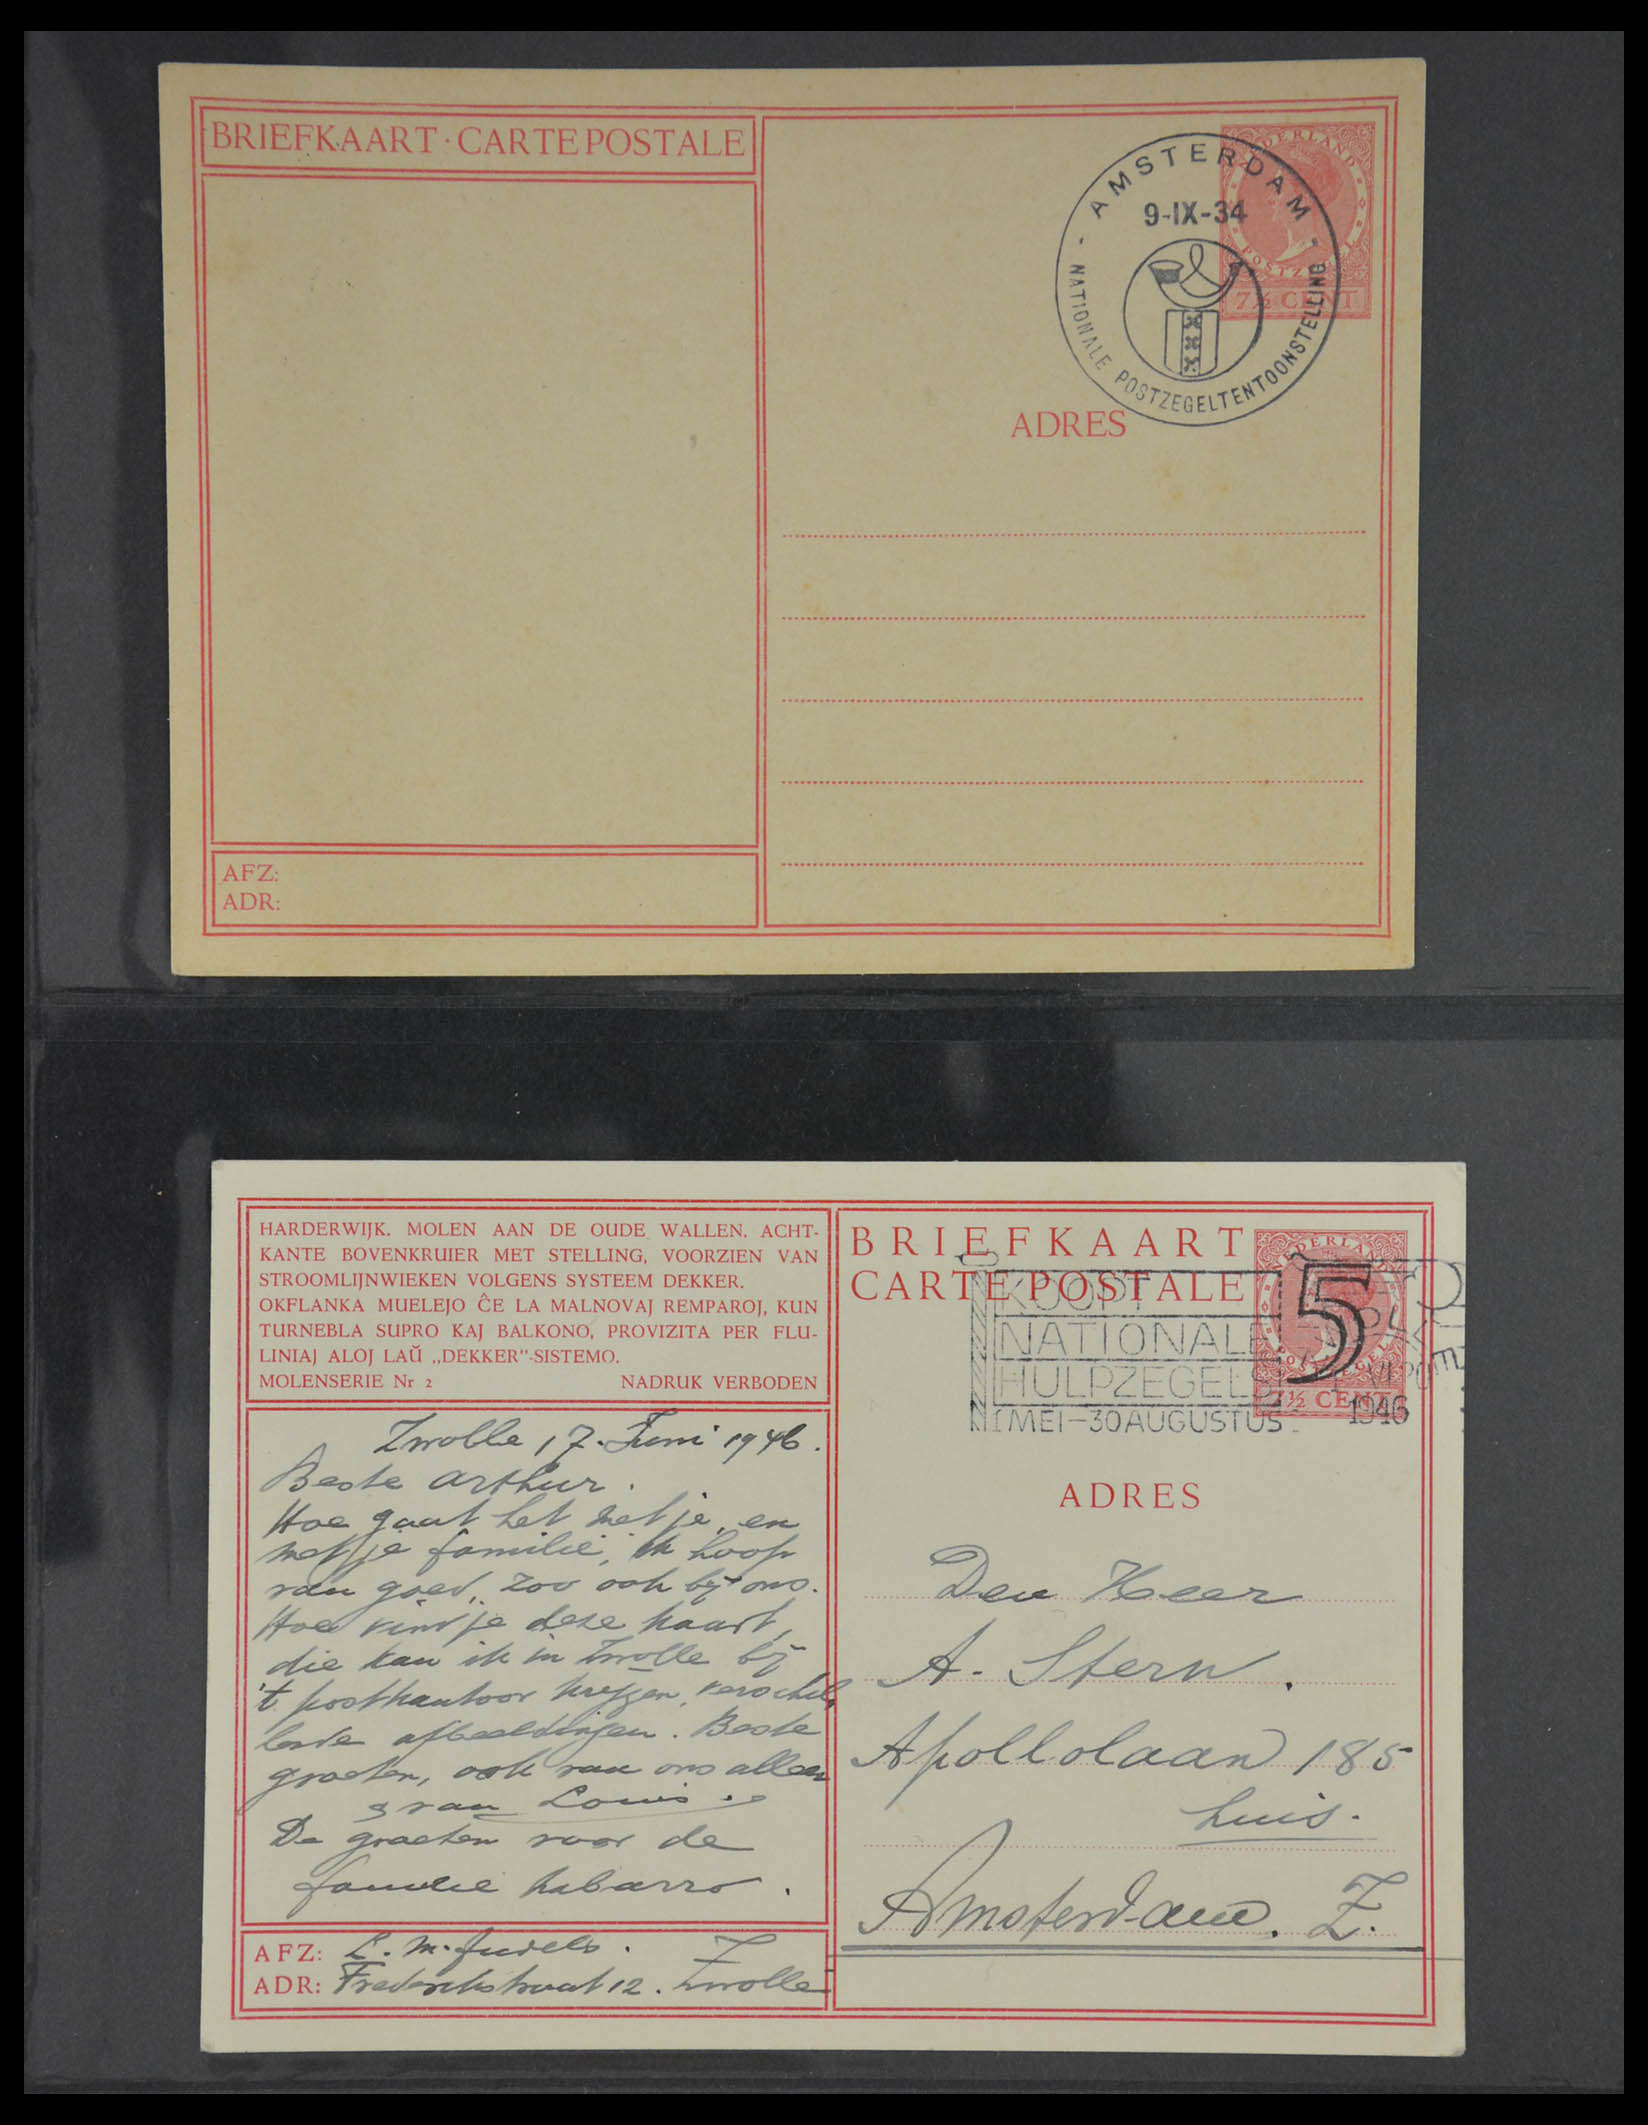 BRIEFKAART · CARTE POSTALE
NEDERLAND
POSTZEGEL
7½ CENT
- AMSTERDAM -
9-IX-34
NATIONALE POSTZEGELTENTOONSTELLING
ADRES
AFZ:
ADR:
HARDERWIJK. MOLEN AAN DE OUDE WALLEN. ACHT-
KANTE BOVENKRUIER MET STELLING, VOORZIEN VAN
STROOMLIJNWIEKEN VOLGENS SYSTEEM DEKKER.
OKFLANKA MUELEJO ĈE LA MALNOVAJ REMPAROJ, KUN
TURNEBLA SUPRO KAJ BALKONO, PROVIZITA PER FLU-
LINIAJ ALOJ LAŬ „DEKKER"-SISTEMO.
MOLENSERIE Nr 2 NADRUK VERBODEN
Zwolle 17. Juni 1946.
Beste Arthur.
Hoe gaat het met je, en
met je familie, ik hoop
van goed, zoo ook bij ons.
Hoe vind je deze kaart,
die kan ik in Zwolle bij
't postkantoor krijgen, verschil
lende afbeeldingen. Beste
groeten, ook van ons allen
van Louis.
De groeten voor de
familie
AFZ: L. M. Judels.
ADR: Frederikstraat 12. Zwolle
BRIEFKAART
CARTE POSTALE
NEDERLAND
POSTZEGEL
7½ CENT
5
KOOPT
NATIONALE
HULPZEGELS
1 MEI-30 AUGUSTUS
1946
ADRES
Den Heer
A. Stern.
Apollolaan 185
huis.
Amsterdam. Z.